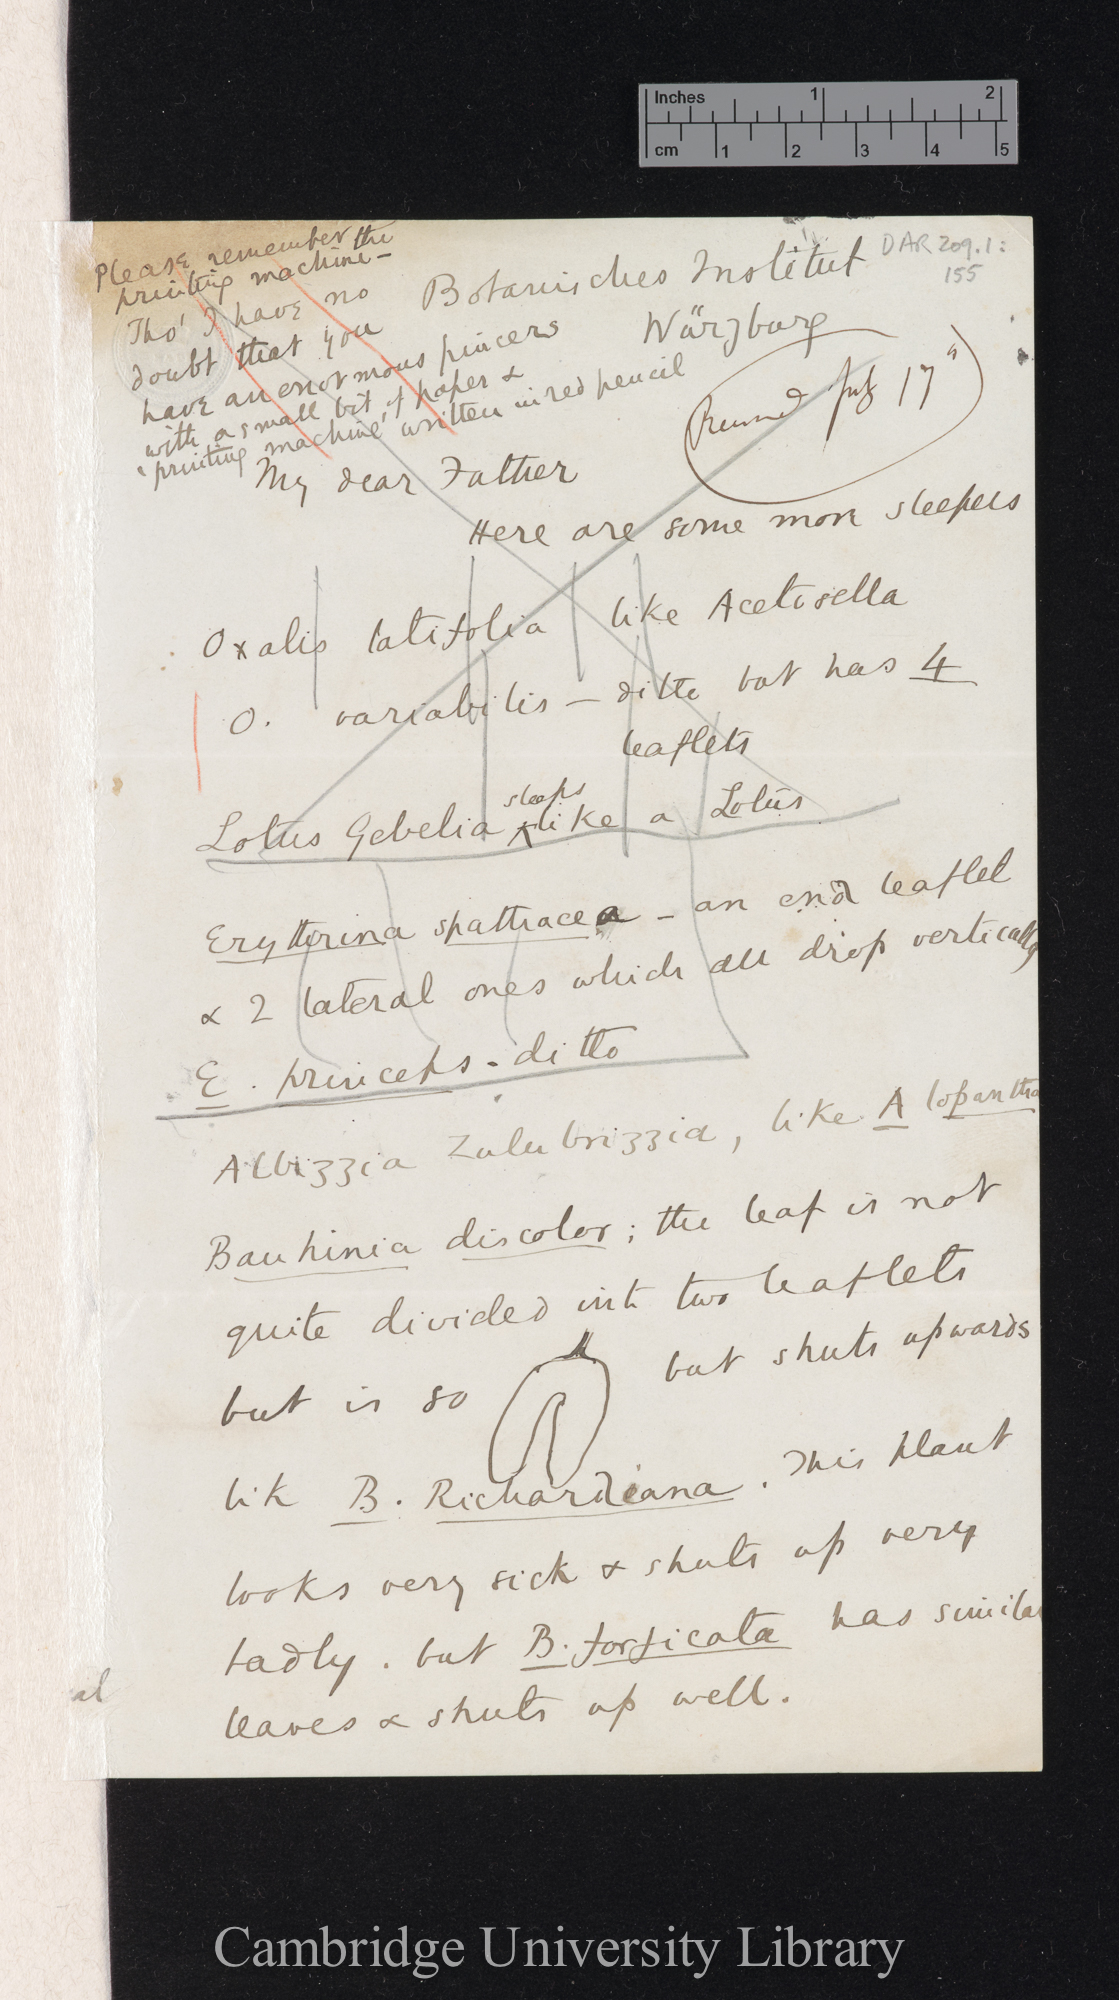 Inches 1 2
cm 1 2 3 4 5
DAR 209.1:
155
Please remember the
printing machine—
Tho' I have no
doubt that you
have an enormous pincers
with a small bit of paper &
'printing machine' written in red pencil
Botanisches Institut
Würzburg
July 17"
My dear Father
Here are some more sleepers
Oxalis latifolia like Acetosella
O. variabilis — ditto but has 4
leaflets
sleeps
Lotus Gebelia like a Lotus
Erythrina spathacea — an end leaflet
& 2 lateral ones which all drop vertically
E. princeps - ditto
Albizzia Zulubrizzia, like A lopantha
Bauhinia discolor; the leaf is not
quite divided into two leaflets
but is so but shuts upwards
lik B. Richardiana. This plant
looks very sick & shuts up very
badly. but B. forficata has similar
leaves & shuts up well.
al
Cambridge University Library